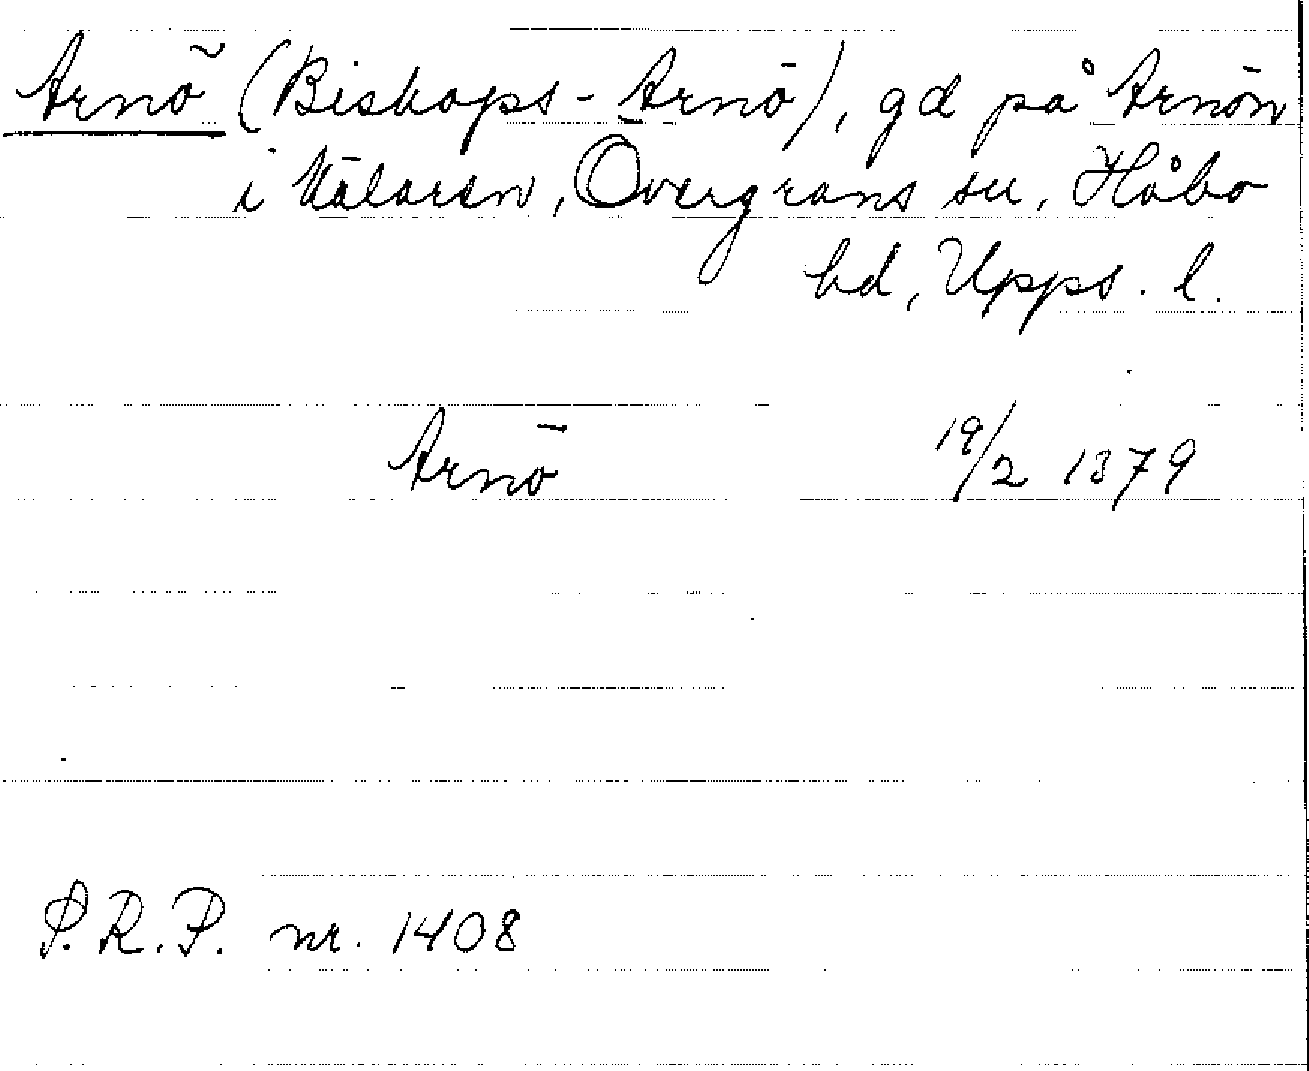 Arnö (Biskops-Arnö), gd på Arnön
i Mälaren, Övergrans sn, Håbo
hd, Upps. l.
Arnö 19/2 1379
S.R.P. nr. 1408